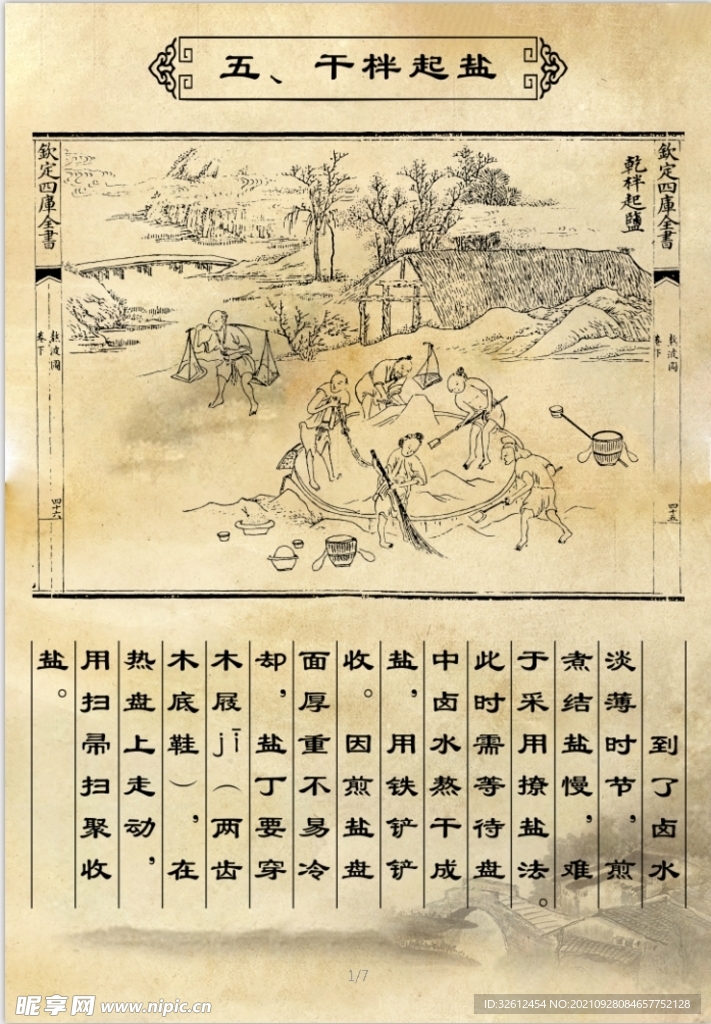 五、干拌起盐
欽定四庫全書
乾拌起鹽
欽定四庫全書
熬波圖
卷下
四十五
熬波圖
卷下
四十六
到了卤水
淡薄时节，煎
煮结盐慢，难
于采用撩盐法。
此时需等待盘
中卤水熬干成
盐，用铁铲铲
收。因煎盐盘
面厚重不易冷
却，盐丁要穿
木屐jī（两齿
木底鞋），在
热盘上走动，
用扫帚扫聚收
盐。
1/7
昵享网 www.nipic.cn
ID:32612454 NO:20210928084657752128